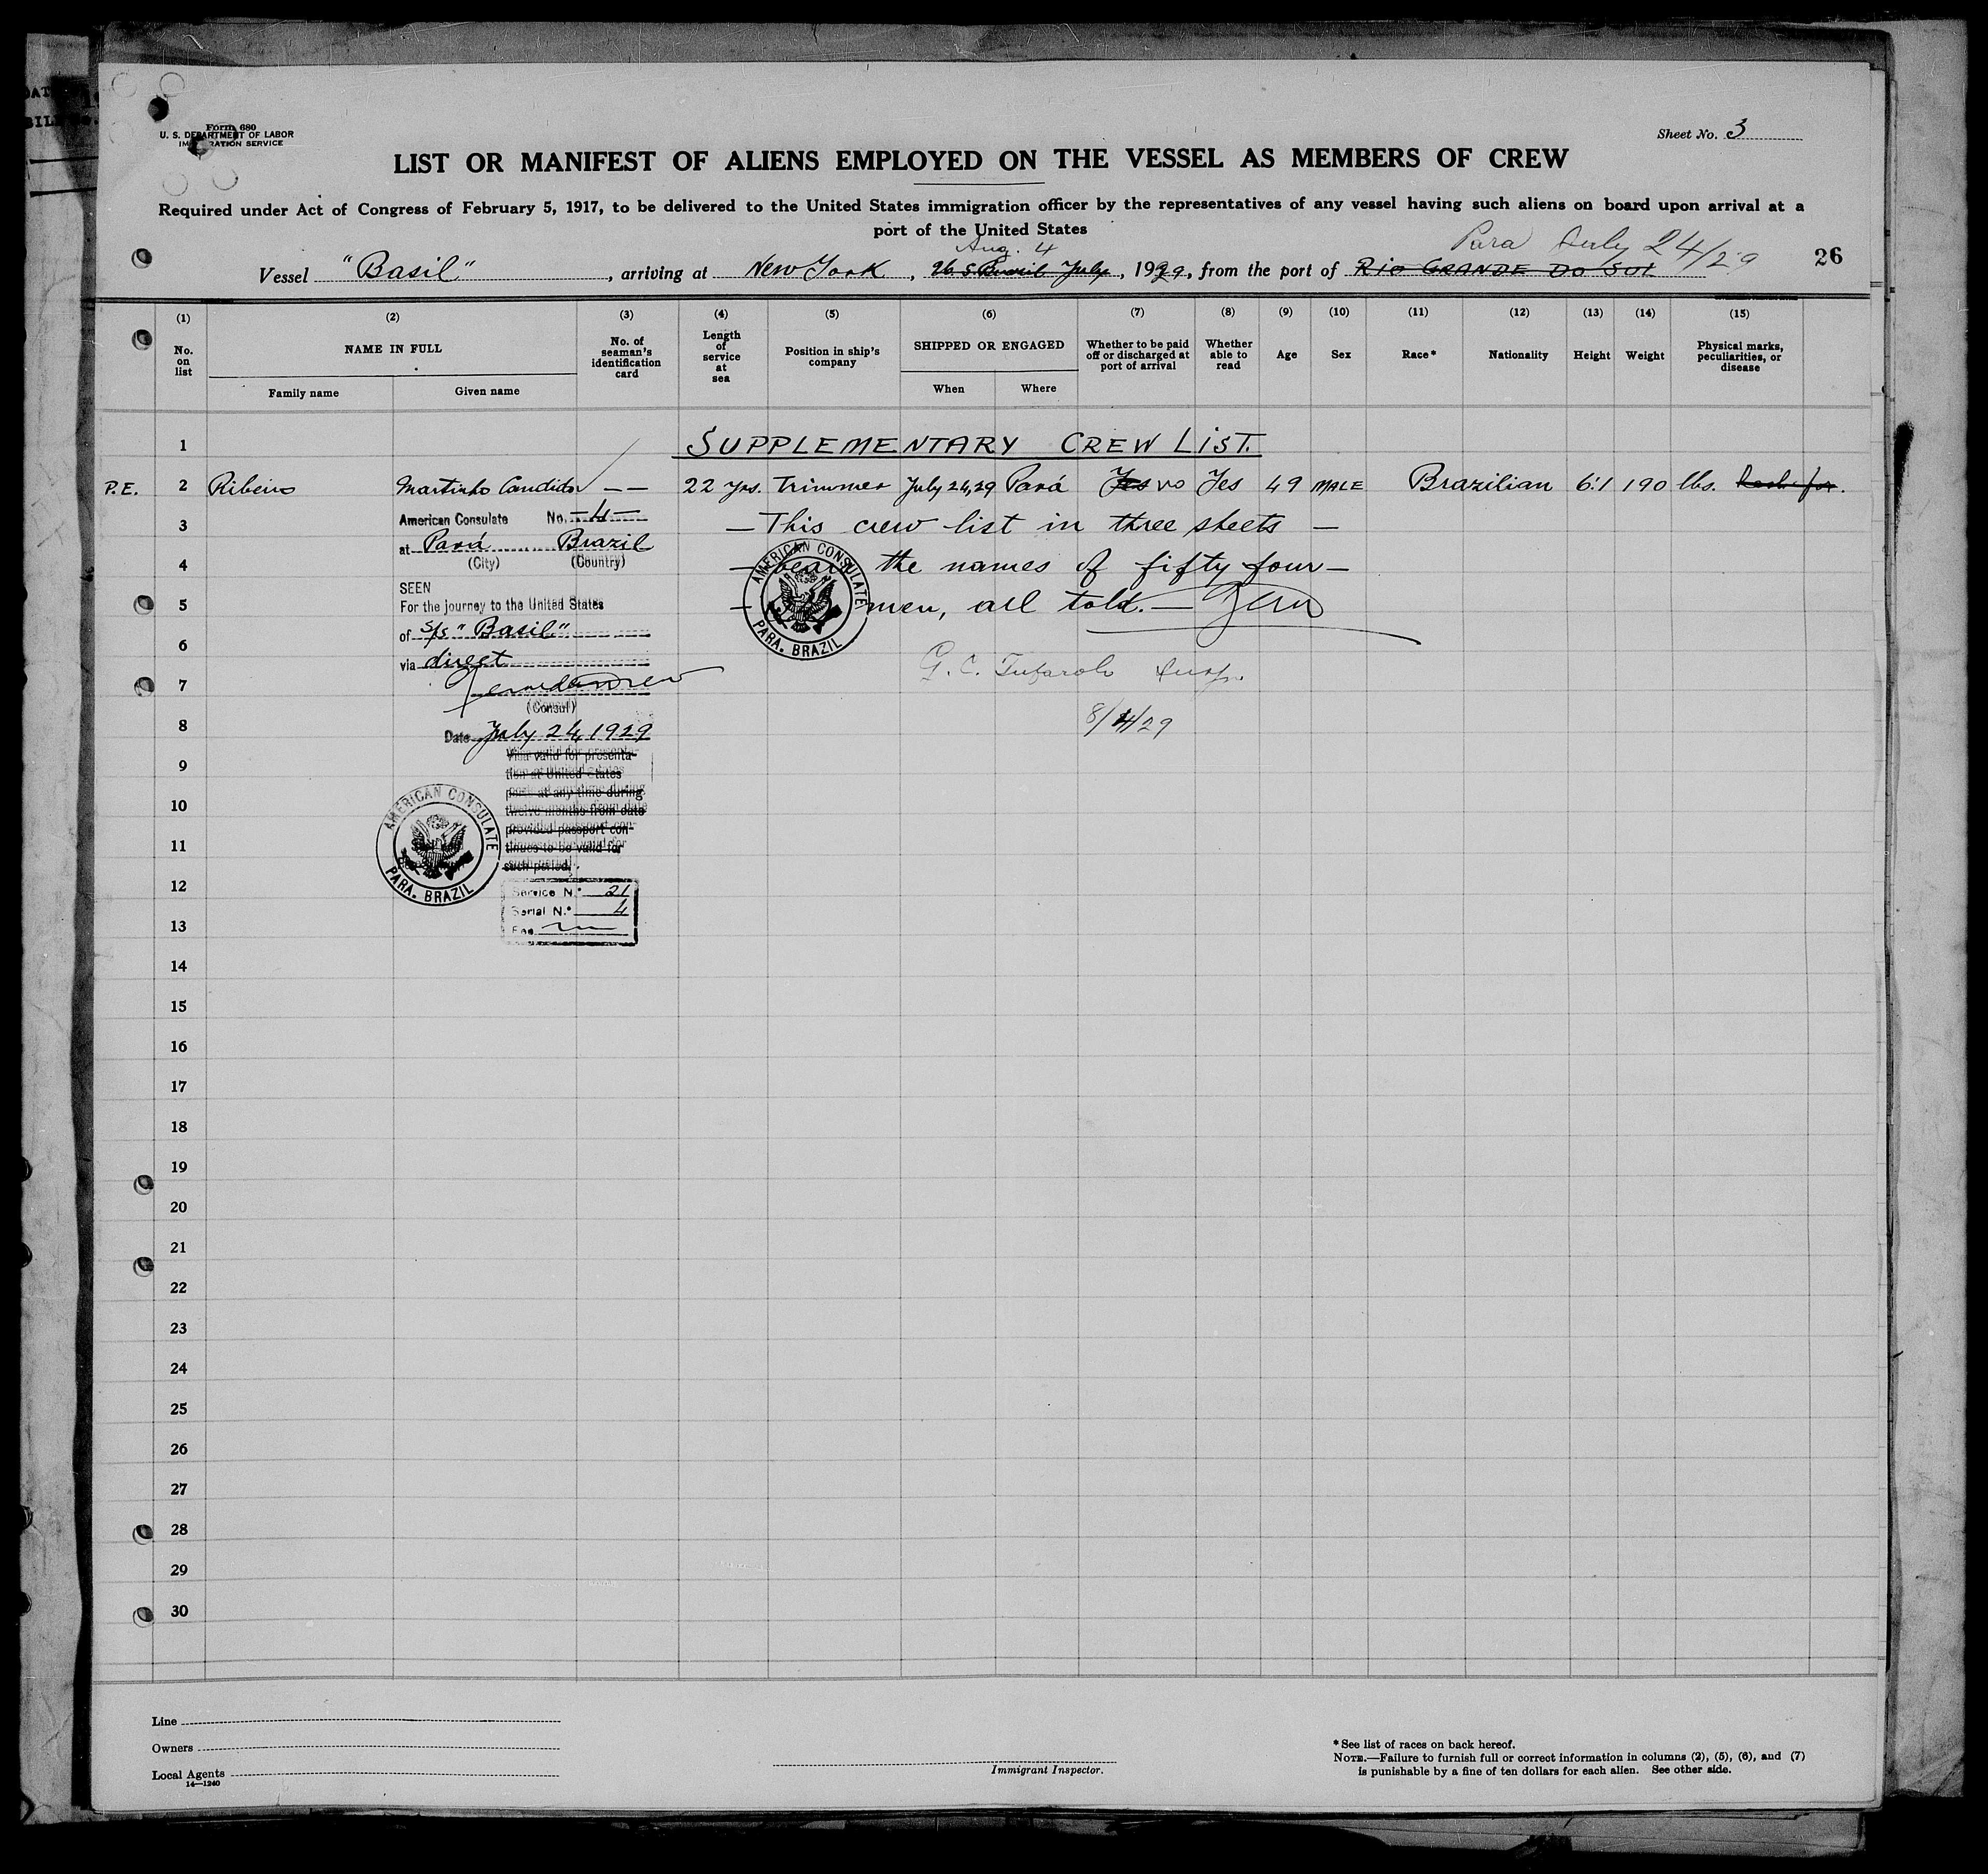 Form 680
U. S. DEPARTMENT OF LABOR
IMMIGRATION SERVICE
Sheet No. 3
LIST OR MANIFEST OF ALIENS EMPLOYED ON THE VESSEL AS MEMBERS OF CREW
Required under Act of Congress of February 5, 1917, to be delivered to the United States immigration officer by the representatives of any vessel having such aliens on board upon arrival at a
port of the United States
Aug. 4
Para July 24/29
Vessel "Basil", arriving at New York, July, 1929, from the port of RIO GRANDE DO SUL
26
(1) (2) (3) (4) (5) (6) (7) (8) (9) (10) (11) (12) (13) (14) (15)
No. on list
NAME IN FULL
Family name
Given name
No. of seaman's identification card
Length of service at sea
Position in ship's company
SHIPPED OR ENGAGED
When
Where
Whether to be paid off or discharged at port of arrival
Whether able to read
Age
Sex
Race*
Nationality
Height
Weight
Physical marks, peculiarities, or disease
1 SUPPLEMENTARY CREW LIST.
P.E. 2 Ribeiro Martinho Candido — — 22 yrs. Trimmer July 24,29 Pará Yes no Yes 49 MALE Brazilian 6.1 190 lbs.
3 — This crew list in three sheets —
4 — bears the names of fifty four —
5 — men, all told. —
6
7
8
9
10
11
12
13
14
15
16
17
18
19
20
21
22
23
24
25
26
27
28
29
30
American Consulate No. — 4 —
at Pará Brazil
(City) (Country)
SEEN
For the journey to the United States
of S/S "Basil"
via direct
(Consul)
Date July 24, 1929
Visa valid for presenta-
tion at United States
ports at any time during
twelve months from date
provided passport con-
tinues to be valid for
such period.
AMERICAN CONSULATE
PARA. BRAZIL
Service N.° 21
Serial N.° 4
Fee
AMERICAN CONSULATE
PARA. BRAZIL
G. C.
8/4/29
Line
Owners
Local Agents
14—1240
Immigrant Inspector.
*See list of races on back hereof.
NOTE.—Failure to furnish full or correct information in columns (2), (5), (6), and (7)
is punishable by a fine of ten dollars for each alien. See other side.